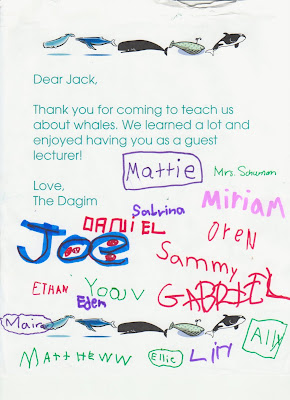 Dear Jack,
Thank you for coming to teach us
about whales. We learned a lot and
enjoyed having you as a guest
lecturer!
Love,
The Dagim
Mattie
Mrs. Schuman
Sabrina
Miriam
DANIEL
JOE
OreN
Sammy
ETHAN
Yoav
Eden
GABRIEL
Maira
Ally
MATTHEWW
Ellie
Liri